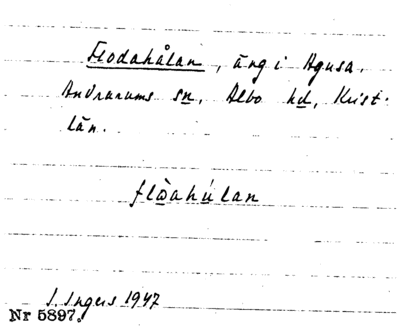 Flodahålan, äng i Agusa.
Andrarums sn, Albo hd, Krist.
län.
flòahúlan
I. Ingers 1947
Nr 5897.